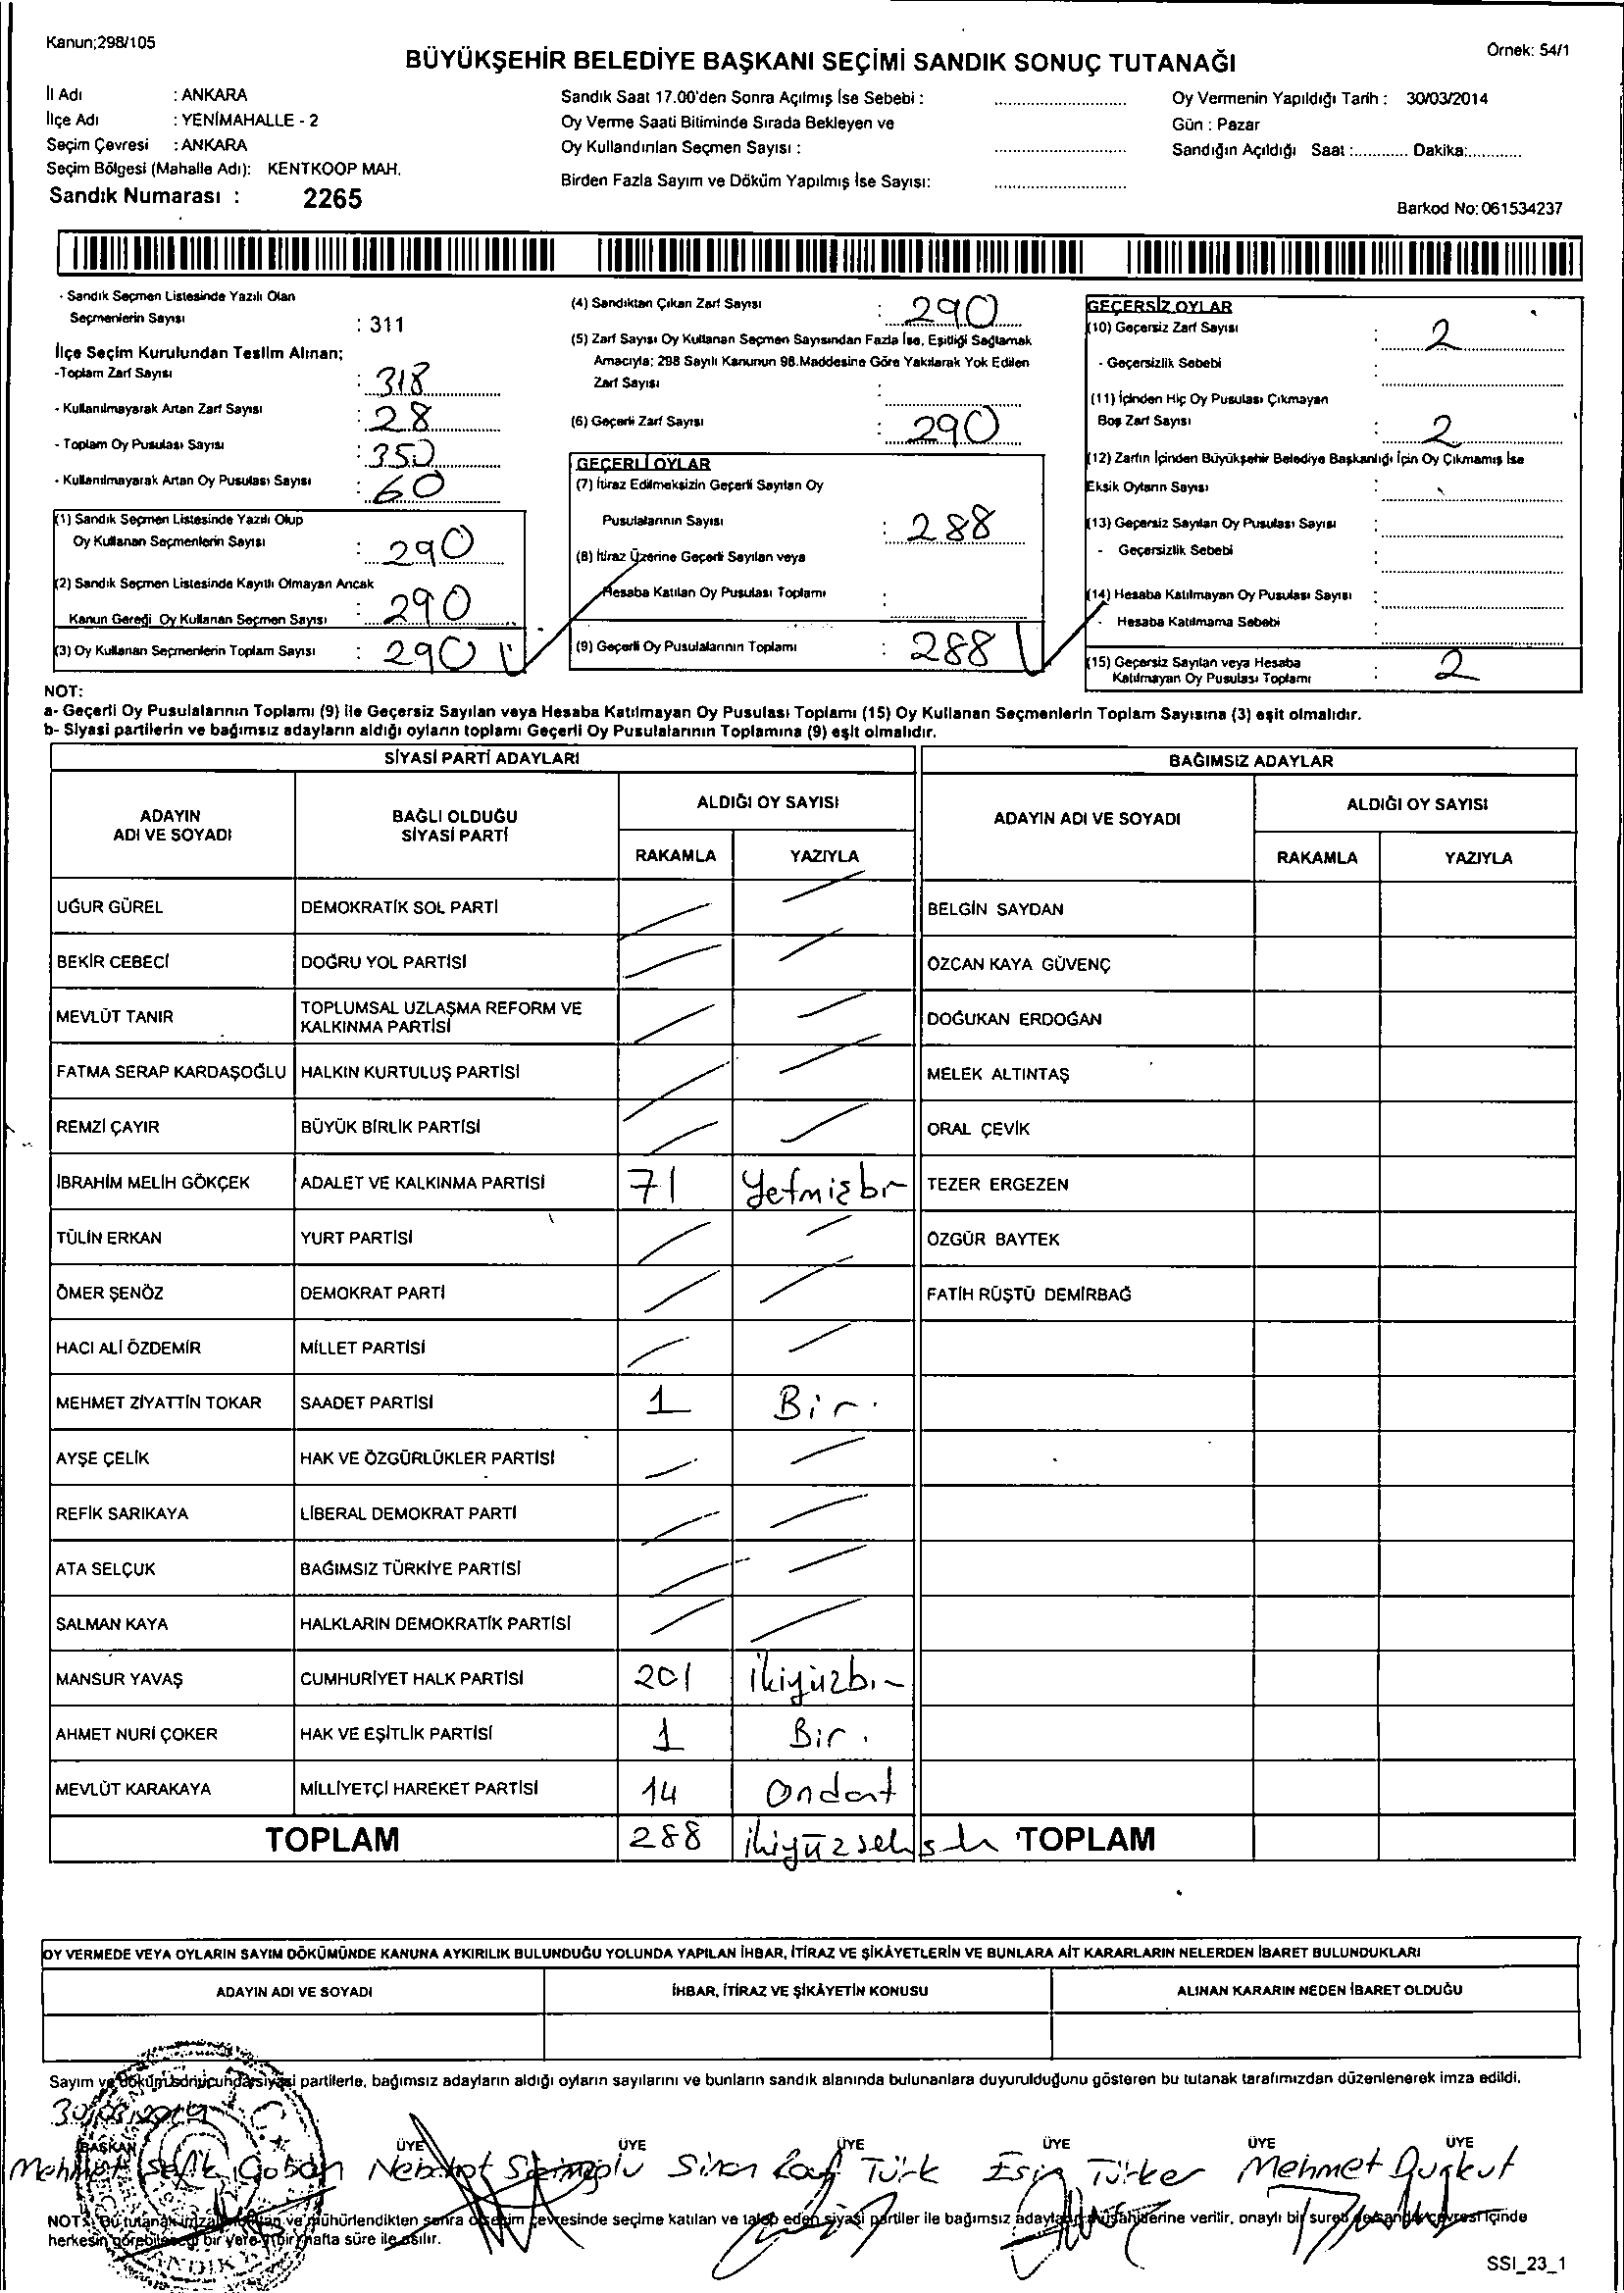 Kanun;298/105
Örnek: 54/1
BÜYÜKŞEHİR BELEDİYE BAŞKANI SEÇİMİ SANDIK SONUÇ TUTANAĞI
İl Adı : ANKARA
İlçe Adı : YENİMAHALLE - 2
Seçim Çevresi : ANKARA
Seçim Bölgesi (Mahalle Adı): KENTKOOP MAH.
Sandık Numarası : 2265
Sandık Saat 17.00'den Sonra Açılmış İse Sebebi :
Oy Verme Saati Bitiminde Sırada Bekleyen ve
Oy Kullandırılan Seçmen Sayısı :
Birden Fazla Sayım ve Döküm Yapılmış İse Sayısı:
Oy Vermenin Yapıldığı Tarih : 30/03/2014
Gün : Pazar
Sandığın Açıldığı Saat :............ Dakika:............
Barkod No: 061534237
- Sandık Seçmen Listesinde Yazılı Olan
Seçmenlerin Sayısı : 311
İlçe Seçim Kurulundan Teslim Alınan;
-Toplam Zarf Sayısı : 318
- Kullanılmayarak Artan Zarf Sayısı : 28
- Toplam Oy Pusulası Sayısı : 350
- Kullanılmayarak Artan Oy Pusulası Sayısı : 60
(1) Sandık Seçmen Listesinde Yazılı Olup
Oy Kullanan Seçmenlerin Sayısı : 290
(2) Sandık Seçmen Listesinde Kayıtlı Olmayan Ancak
Kanun Gereği Oy Kullanan Seçmen Sayısı : 290
(3) Oy Kullanan Seçmenlerin Toplam Sayısı : 290
(4) Sandıktan Çıkan Zarf Sayısı : 290
(5) Zarf Sayısı Oy Kullanan Seçmen Sayısından Fazla İse, Eşitliği Sağlamak
Amacıyla; 298 Sayılı Kanunun 98.Maddesine Göre Yakılarak Yok Edilen
Zarf Sayısı :
(6) Geçerli Zarf Sayısı : 290
GEÇERLİ OYLAR
(7) İtiraz Edilmeksizin Geçerli Sayılan Oy
Pusulalarının Sayısı : 288
(8) İtiraz Üzerine Geçerli Sayılan veya
Hesaba Katılan Oy Pusulası Toplamı :
(9) Geçerli Oy Pusulalarının Toplamı : 288
GEÇERSİZ OYLAR
(10) Geçersiz Zarf Sayısı : 2
- Geçersizlik Sebebi :
(11) İçinden Hiç Oy Pusulası Çıkmayan
Boş Zarf Sayısı : 2
(12) Zarfın İçinden Büyükşehir Belediye Başkanlığı İçin Oy Çıkmamış İse
Eksik Oyların Sayısı :
(13) Geçersiz Sayılan Oy Pusulası Sayısı :
- Geçersizlik Sebebi :
(14) Hesaba Katılmayan Oy Pusulası Sayısı :
- Hesaba Katılmama Sebebi :
(15) Geçersiz Sayılan veya Hesaba
Katılmayan Oy Pusulası Toplamı : 2
NOT:
a- Geçerli Oy Pusulalarının Toplamı (9) ile Geçersiz Sayılan veya Hesaba Katılmayan Oy Pusulası Toplamı (15) Oy Kullanan Seçmenlerin Toplam Sayısına (3) eşit olmalıdır.
b- Siyasi partilerin ve bağımsız adayların aldığı oyların toplamı Geçerli Oy Pusulalarının Toplamına (9) eşit olmalıdır.
SİYASİ PARTİ ADAYLARI BAĞIMSIZ ADAYLAR
ADAYIN ADI VE SOYADI BAĞLI OLDUĞU SİYASİ PARTİ ALDIĞI OY SAYISI ADAYIN ADI VE SOYADI ALDIĞI OY SAYISI
RAKAMLA YAZIYLA RAKAMLA YAZIYLA
UĞUR GÜREL DEMOKRATİK SOL PARTİ BELGİN SAYDAN
BEKİR CEBECİ DOĞRU YOL PARTİSİ ÖZCAN KAYA GÜVENÇ
MEVLÜT TANIR TOPLUMSAL UZLAŞMA REFORM VE KALKINMA PARTİSİ DOĞUKAN ERDOĞAN
FATMA SERAP KARDAŞOĞLU HALKIN KURTULUŞ PARTİSİ MELEK ALTINTAŞ
REMZİ ÇAYIR BÜYÜK BİRLİK PARTİSİ ORAL ÇEVİK
İBRAHİM MELİH GÖKÇEK ADALET VE KALKINMA PARTİSİ 71 Yetmişbir TEZER ERGEZEN
TÜLİN ERKAN YURT PARTİSİ ÖZGÜR BAYTEK
ÖMER ŞENÖZ DEMOKRAT PARTİ FATİH RÜŞTÜ DEMİRBAĞ
HACI ALİ ÖZDEMİR MİLLET PARTİSİ
MEHMET ZİYATTİN TOKAR SAADET PARTİSİ 1 Bir.
AYŞE ÇELİK HAK VE ÖZGÜRLÜKLER PARTİSİ
REFİK SARIKAYA LİBERAL DEMOKRAT PARTİ
ATA SELÇUK BAĞIMSIZ TÜRKİYE PARTİSİ
SALMAN KAYA HALKLARIN DEMOKRATİK PARTİSİ
MANSUR YAVAŞ CUMHURİYET HALK PARTİSİ 201 ikiyüzbir
AHMET NURİ ÇOKER HAK VE EŞİTLİK PARTİSİ 1 Bir.
MEVLÜT KARAKAYA MİLLİYETÇİ HAREKET PARTİSİ 14 Ondört
TOPLAM 288 TOPLAM
OY VERMEDE VEYA OYLARIN SAYIM DÖKÜMÜNDE KANUNA AYKIRILIK BULUNDUĞU YOLUNDA YAPILAN İHBAR, İTİRAZ VE ŞİKÂYETLERİN VE BUNLARA AİT KARARLARIN NELERDEN İBARET BULUNDUKLARI
ADAYIN ADI VE SOYADI İHBAR, İTİRAZ VE ŞİKÂYETİN KONUSU ALINAN KARARIN NEDEN İBARET OLDUĞU
Sayım ve döküm sonucunda siyasi partilerle, bağımsız adayların aldığı oyların sayılarını ve bunların sandık alanında bulunanlara duyurulduğunu gösteren bu tutanak tarafımızdan düzenlenerek imza edildi.
30/03/2014
BAŞKAN ÜYE ÜYE ÜYE ÜYE ÜYE ÜYE
Mehmet Şefik Çoban Sinan Türk Esin Türker Mehmet
NOT: Bu tutanak ve mühürlendikten sonra o seçim çevresinde seçime katılan ve talep eden siyasi partiler ile bağımsız aday müşahitlerine verilir, onaylı bir sureti de sandık çevresi içinde
herkesin görebileceği bir yere bir hafta süre ile asılır.
SSI_23_1